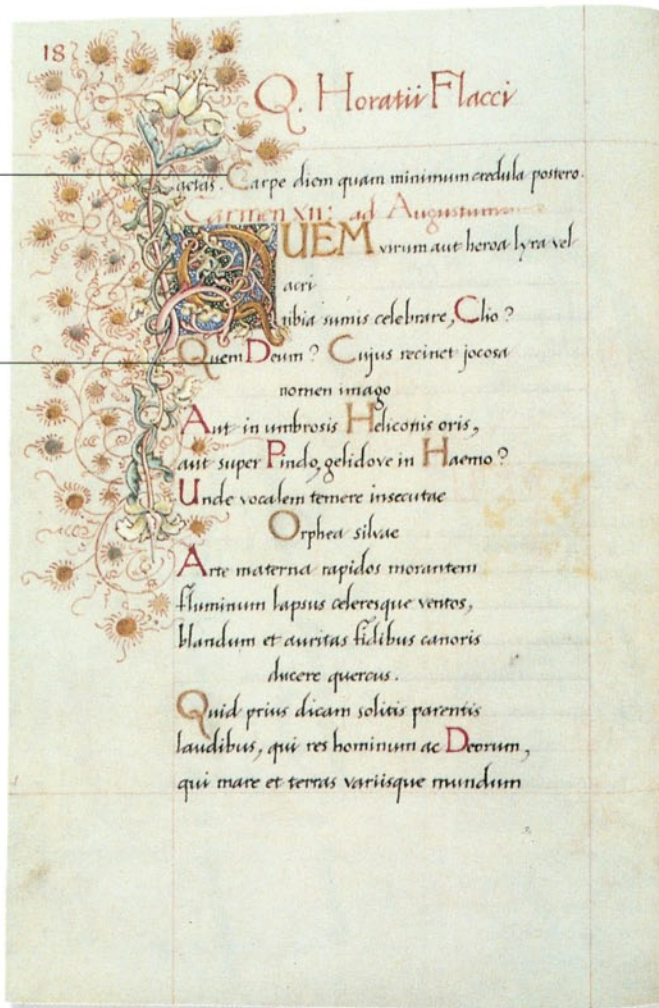 18
Q. Horatii Flacci
aetas. Carpe diem quam minimum credula postero.
Carmen XII: ad Augustum
QUEM virum aut heroa lyra vel
acri
tibia sumis celebrare, Clio?
Quem Deum? Cujus recinet jocosa
nomen imago
Aut in umbrosis Heliconis oris,
aut super Pindo, gelidove in Haemo?
Unde vocalem temere insecutae
Orphea silvae
Arte materna rapidos morantem
fluminum lapsus celeresque ventos,
blandum et auritas fidibus canoris
ducere quercus.
Quid prius dicam solitis parentis
laudibus, qui res hominum ac Deorum,
qui mare et terras variisque mundum